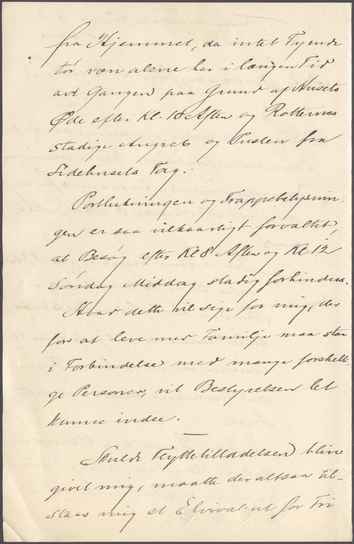 fra Hjemmet, da intet Tyende
tør være alene her i længere Tid
ad Gangen paa Grund af Husets
Øde efter Kl. 18 Aften og Rotternes
stadige Angreb og Puslen fra
Sidehusets Tag.
Portlukningen og Trappebelysnin
gen er saa vilkaarligt forvaltet,
at Besøg efter Kl 8 Aften og Kl. 12
Søndag Middag stadig forhindres.
Hvad dette vil sige for mig, der
for at leve med Familje maa staa
i Forbindelse med mange forskelli
ge Personer, vil Bestyrelsen let
kunne indse.
Skulde Flyttetilladelsen blive
givet mig, maatte der altsaa til-
staaes mig et Ekvivalent for Fri